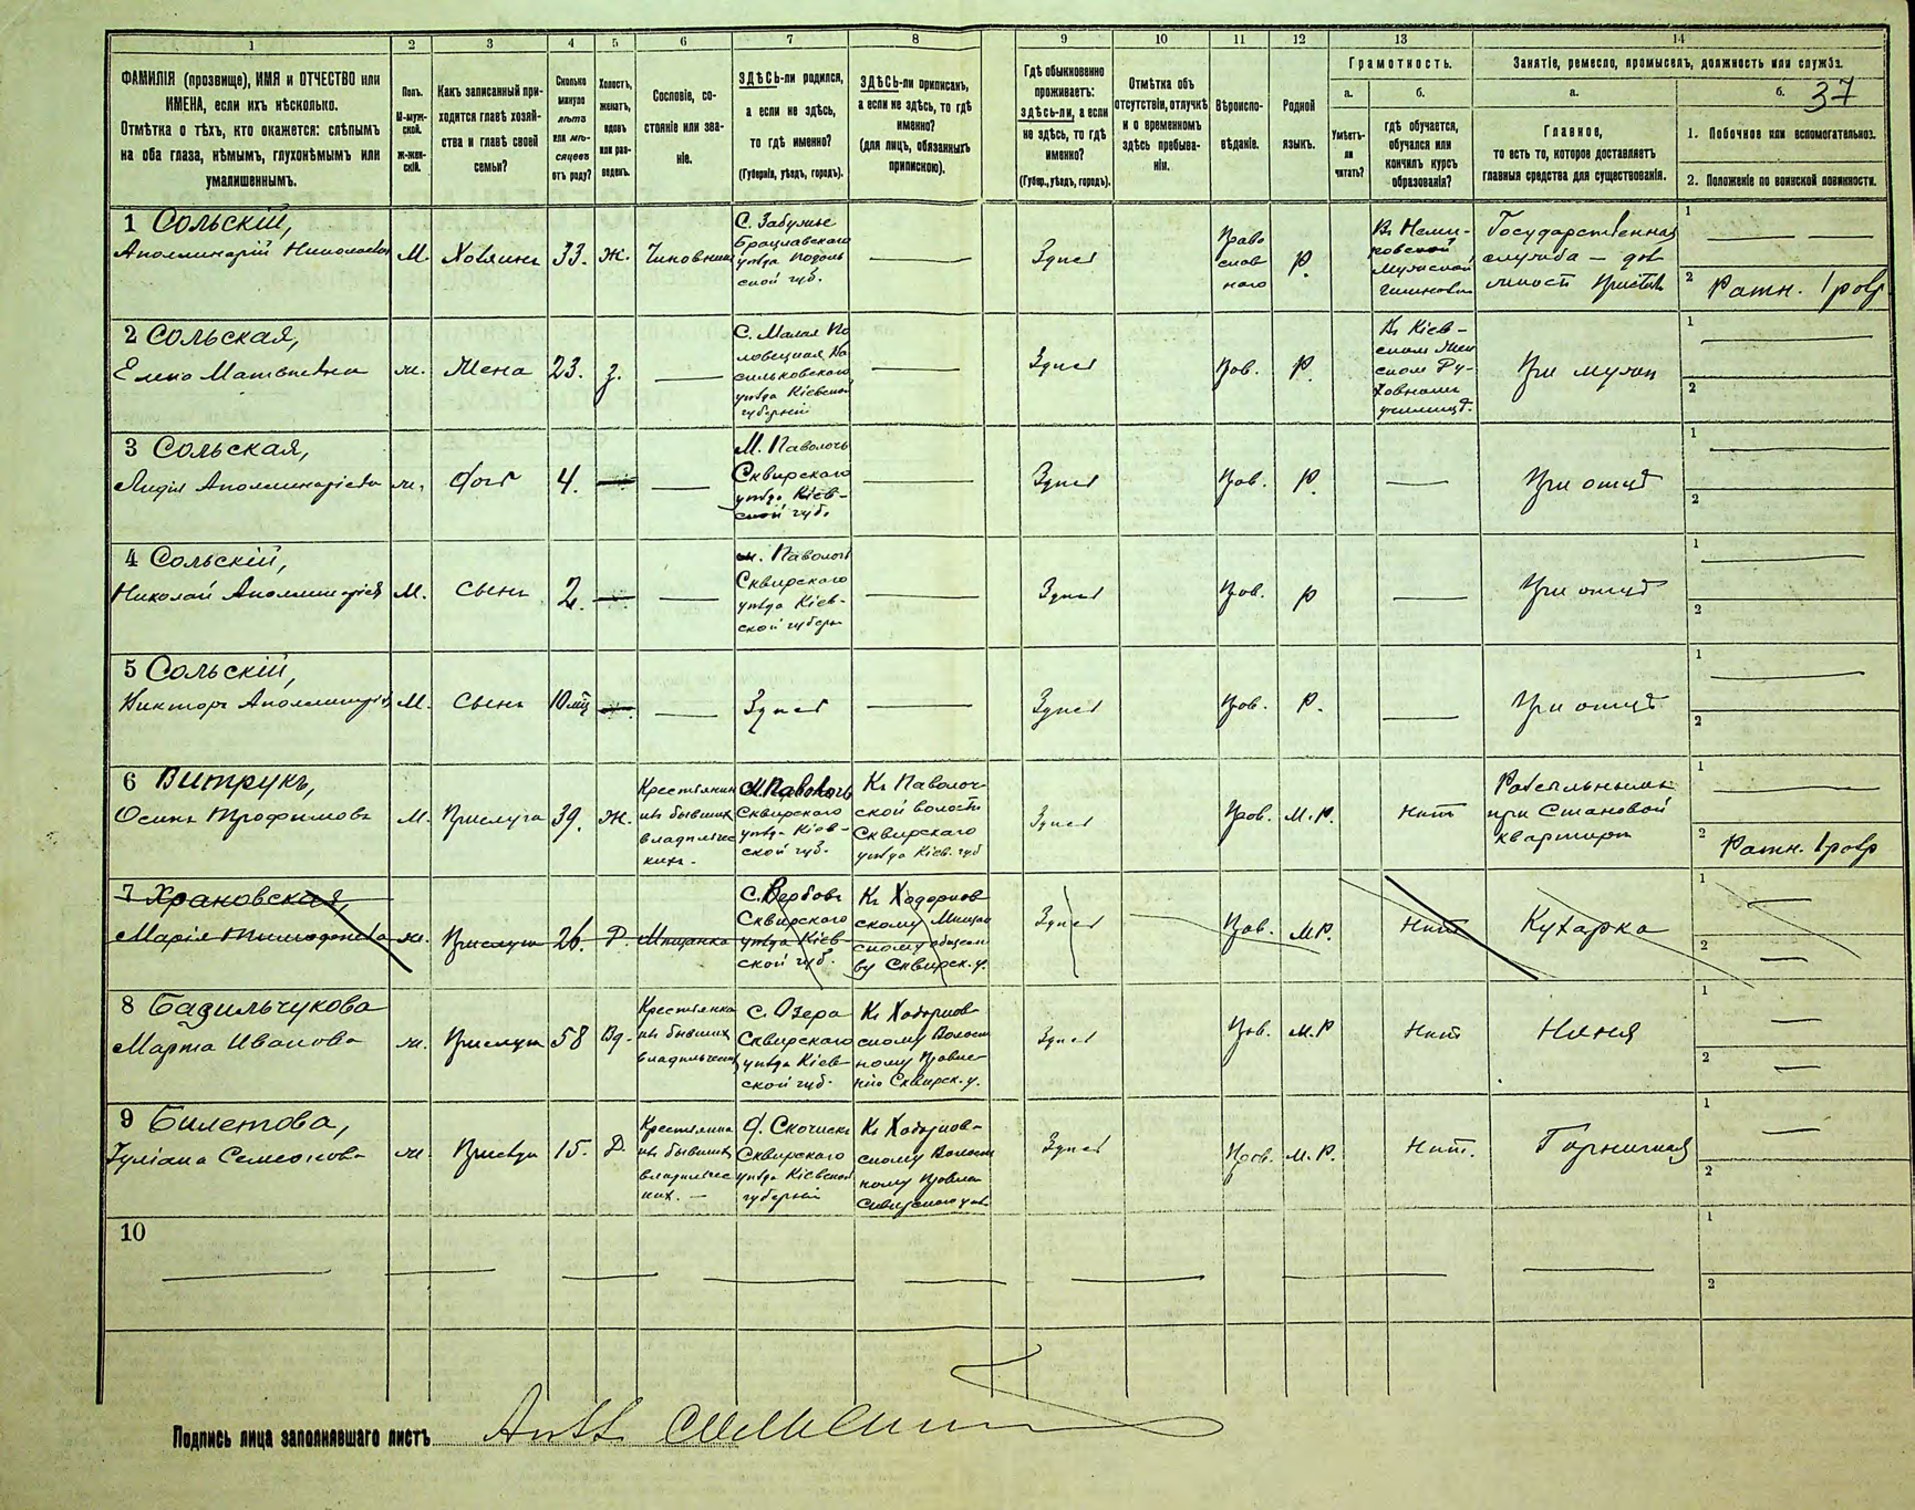 1 2 3 4 5 6 7 8 9 10 11 12 13 14
37
ФАМИЛІЯ (прозвище), ИМЯ и ОТЧЕСТВО или
ИМЕНА, если ихъ нѣсколько.
Отмѣтка о тѣхъ, кто окажется: слѣпымъ
на оба глаза, нѣмымъ, глухонѣмымъ или
умалишеннымъ.
Полъ.
М-муж-
ской.
ж-жен-
скій.
Какъ записанный при-
ходится главѣ хозяй-
ства и главѣ своей
семьи?
Сколько
минуло
лѣтъ
или мѣ-
сяцевъ
отъ роду?
Холостъ,
женатъ,
вдовъ
или раз-
веденъ.
Сословіе, со-
стояніе или зва-
ніе.
ЗДѢСЬ-ли родился,
а если не здѣсь,
то гдѣ именно?
(Губернія, уѣздъ, городъ).
ЗДѢСЬ-ли приписанъ,
а если не здѣсь, то гдѣ
именно?
(для лицъ, обязанныхъ
припискою).
Гдѣ обыкновенно
проживаетъ:
ЗДѢСЬ-ли, а если
не здѣсь, то гдѣ
именно?
(Губер., уѣздъ, городъ).
Отмѣтка объ
отсутствіи, отлучкѣ
и о временномъ
здѣсь пребыва-
ніи.
Вѣроиспо-
вѣданіе.
Родной
языкъ.
Грамотность.
а.
Умѣетъ-
ли
читать?
б.
гдѣ обучается,
обучался или
кончилъ курсъ
образованія?
Занятіе, ремесло, промыселъ, должность или служба.
а.
Главное,
то есть то, которое доставляетъ
главныя средства для существованія.
б.
1. Побочное или вспомогательное.
2. Положеніе по воинской повинности.
1 Сольскій,
Аполлинарій Николаевъ
М.
Хозяинъ
33.
Ж.
Чиновникъ
С. Забужье
Брацлавскаго
уѣзда Подоль
ской губ.
Здѣсь
Право
слав
наго
Р.
Въ Неми-
ровской
мужской
гимназіи
Государственная
служба — дол
жность Пристава
1
2 Ратн. 1 разр
2 Сольская,
Елена Матвѣевна
ж.
Жена
23.
З.
С. Малая По
ловецкая Ва
сильковскаго
уѣзда Кіевской
губерніи
Здѣсь
Прав.
Р.
Въ Кіев-
скомъ Жен
скомъ Ду-
ховномъ
училищѣ.
При мужѣ
1
2
3 Сольская,
Лидія Аполлинаріева
ж.
дочь
4.
М. Паволочь
Сквирскаго
уѣзда Кіев-
ской губ.
Здѣсь
Прав.
Р.
При отцѣ
1
2
4 Сольскій,
Николай Аполлинаріев
М.
Сынъ
2.
м. Паволочь
Сквирскаго
уѣзда Кіев-
ской губерн
Здѣсь
Прав.
Р
При отцѣ
1
2
5 Сольскій,
Викторъ Аполлинарів
М.
Сынъ
10 мѣ
Здѣсь
Здѣсь
Прав.
Р.
При отцѣ
1
2
6 Витрукъ,
Осипъ Трофимовъ
М.
Прислуга
39.
Ж.
Крестьянинъ
изъ бывшихъ
владѣльчес
кихъ.
М. Паволочь
Сквирскаго
уѣзда Кіев-
ской губ.
Къ Паволоч-
ской волости
Сквирскаго
уѣзда Кіев. губ
Здѣсь
Прав.
М. Р.
Нѣтъ
при Становой
квартирѣ
1
2 Ратн. 1 разр
7 Храновская,
Марія
ж.
Прислуга
26.
Д.
Мѣщанка
С. Вербовъ
Сквирскаго
уѣзда Кіев-
ской губ.
Къ Ходорков
скому Мѣщан
скому общест
ву Сквирск. у.
Здѣсь
Прав.
М.Р.
Нѣтъ
Кухарка
1
2
8 Бадильчукова
Марта Иванова
ж.
Прислуга
58
Вд.
Крестьянка
изъ бывшихъ
владѣльческ
С. Озера
Сквирскаго
уѣзда Кіев-
ской губ.
Къ Ходорков-
скому Волост
ному Правле-
нію Сквирск. у.
Здѣсь
Прав.
М.Р
Нѣтъ
Няня
1
2
9 Билетова,
Іуліана Семенова
ж.
Прислуга
15.
Д.
Крестьянка
изъ бывшихъ
владѣльчес
ких. —
Сквирскаго
уѣзда Кіевской
губерніи
Къ Ходорков-
скому Волост
ному Правле
Сквирскаго уѣз
Здѣсь
Прав.
М. Р.
Нѣтъ.
Горничная
1
2
10
1
2
Подпись лица заполнявшаго листъ